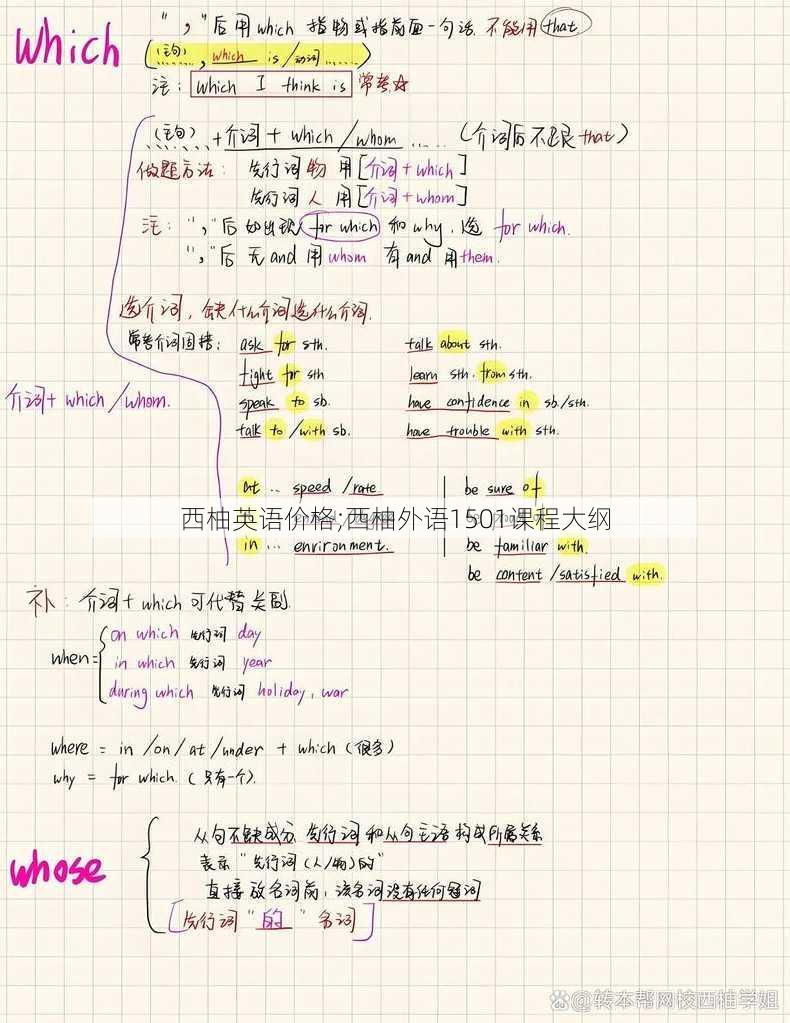 which
"，"后用which 指物或指前面一句话. 不能用that
(主句), which is /动词......
注: which I think is 常考☆
(主句) + 介词 + which /whom ..... (介词后不跟 that)
做题方法: 先行词 物 用[介词+which]
先行词 人 用[介词+whom]
注: "，"后 如出现 for which 和 why, 选 for which.
"，"后 无and 用whom 有and 用them.
选介词, 缺什么介词选什么介词.
常考介词固搭: ask for sth. talk about sth.
fight for sth learn sth. from sth.
speak to sb. have confidence in sb./sth.
介词+ which /whom.
talk to /with sb. have trouble with sth.
at ... speed /rate be sure of
西柚英语价格;西柚外语1501课程大纲
in ... environment. be familiar with.
be content /satisfied with.
补: 介词+ which 可代替关副.
when=
on which 先行词 day
in which 先行词 year
during which 先行词 holiday, war
where = in /on/ at /under + which (很多)
why = for which. (只有一个).
whose
从句不缺成分 先行词 和从句主语 构成所属关系
表示 "先行词(人/物)的"
直接放名词前, 该名词没有任何冠词
[先行词 "的" 名词]
@转本帮网校西柚学姐